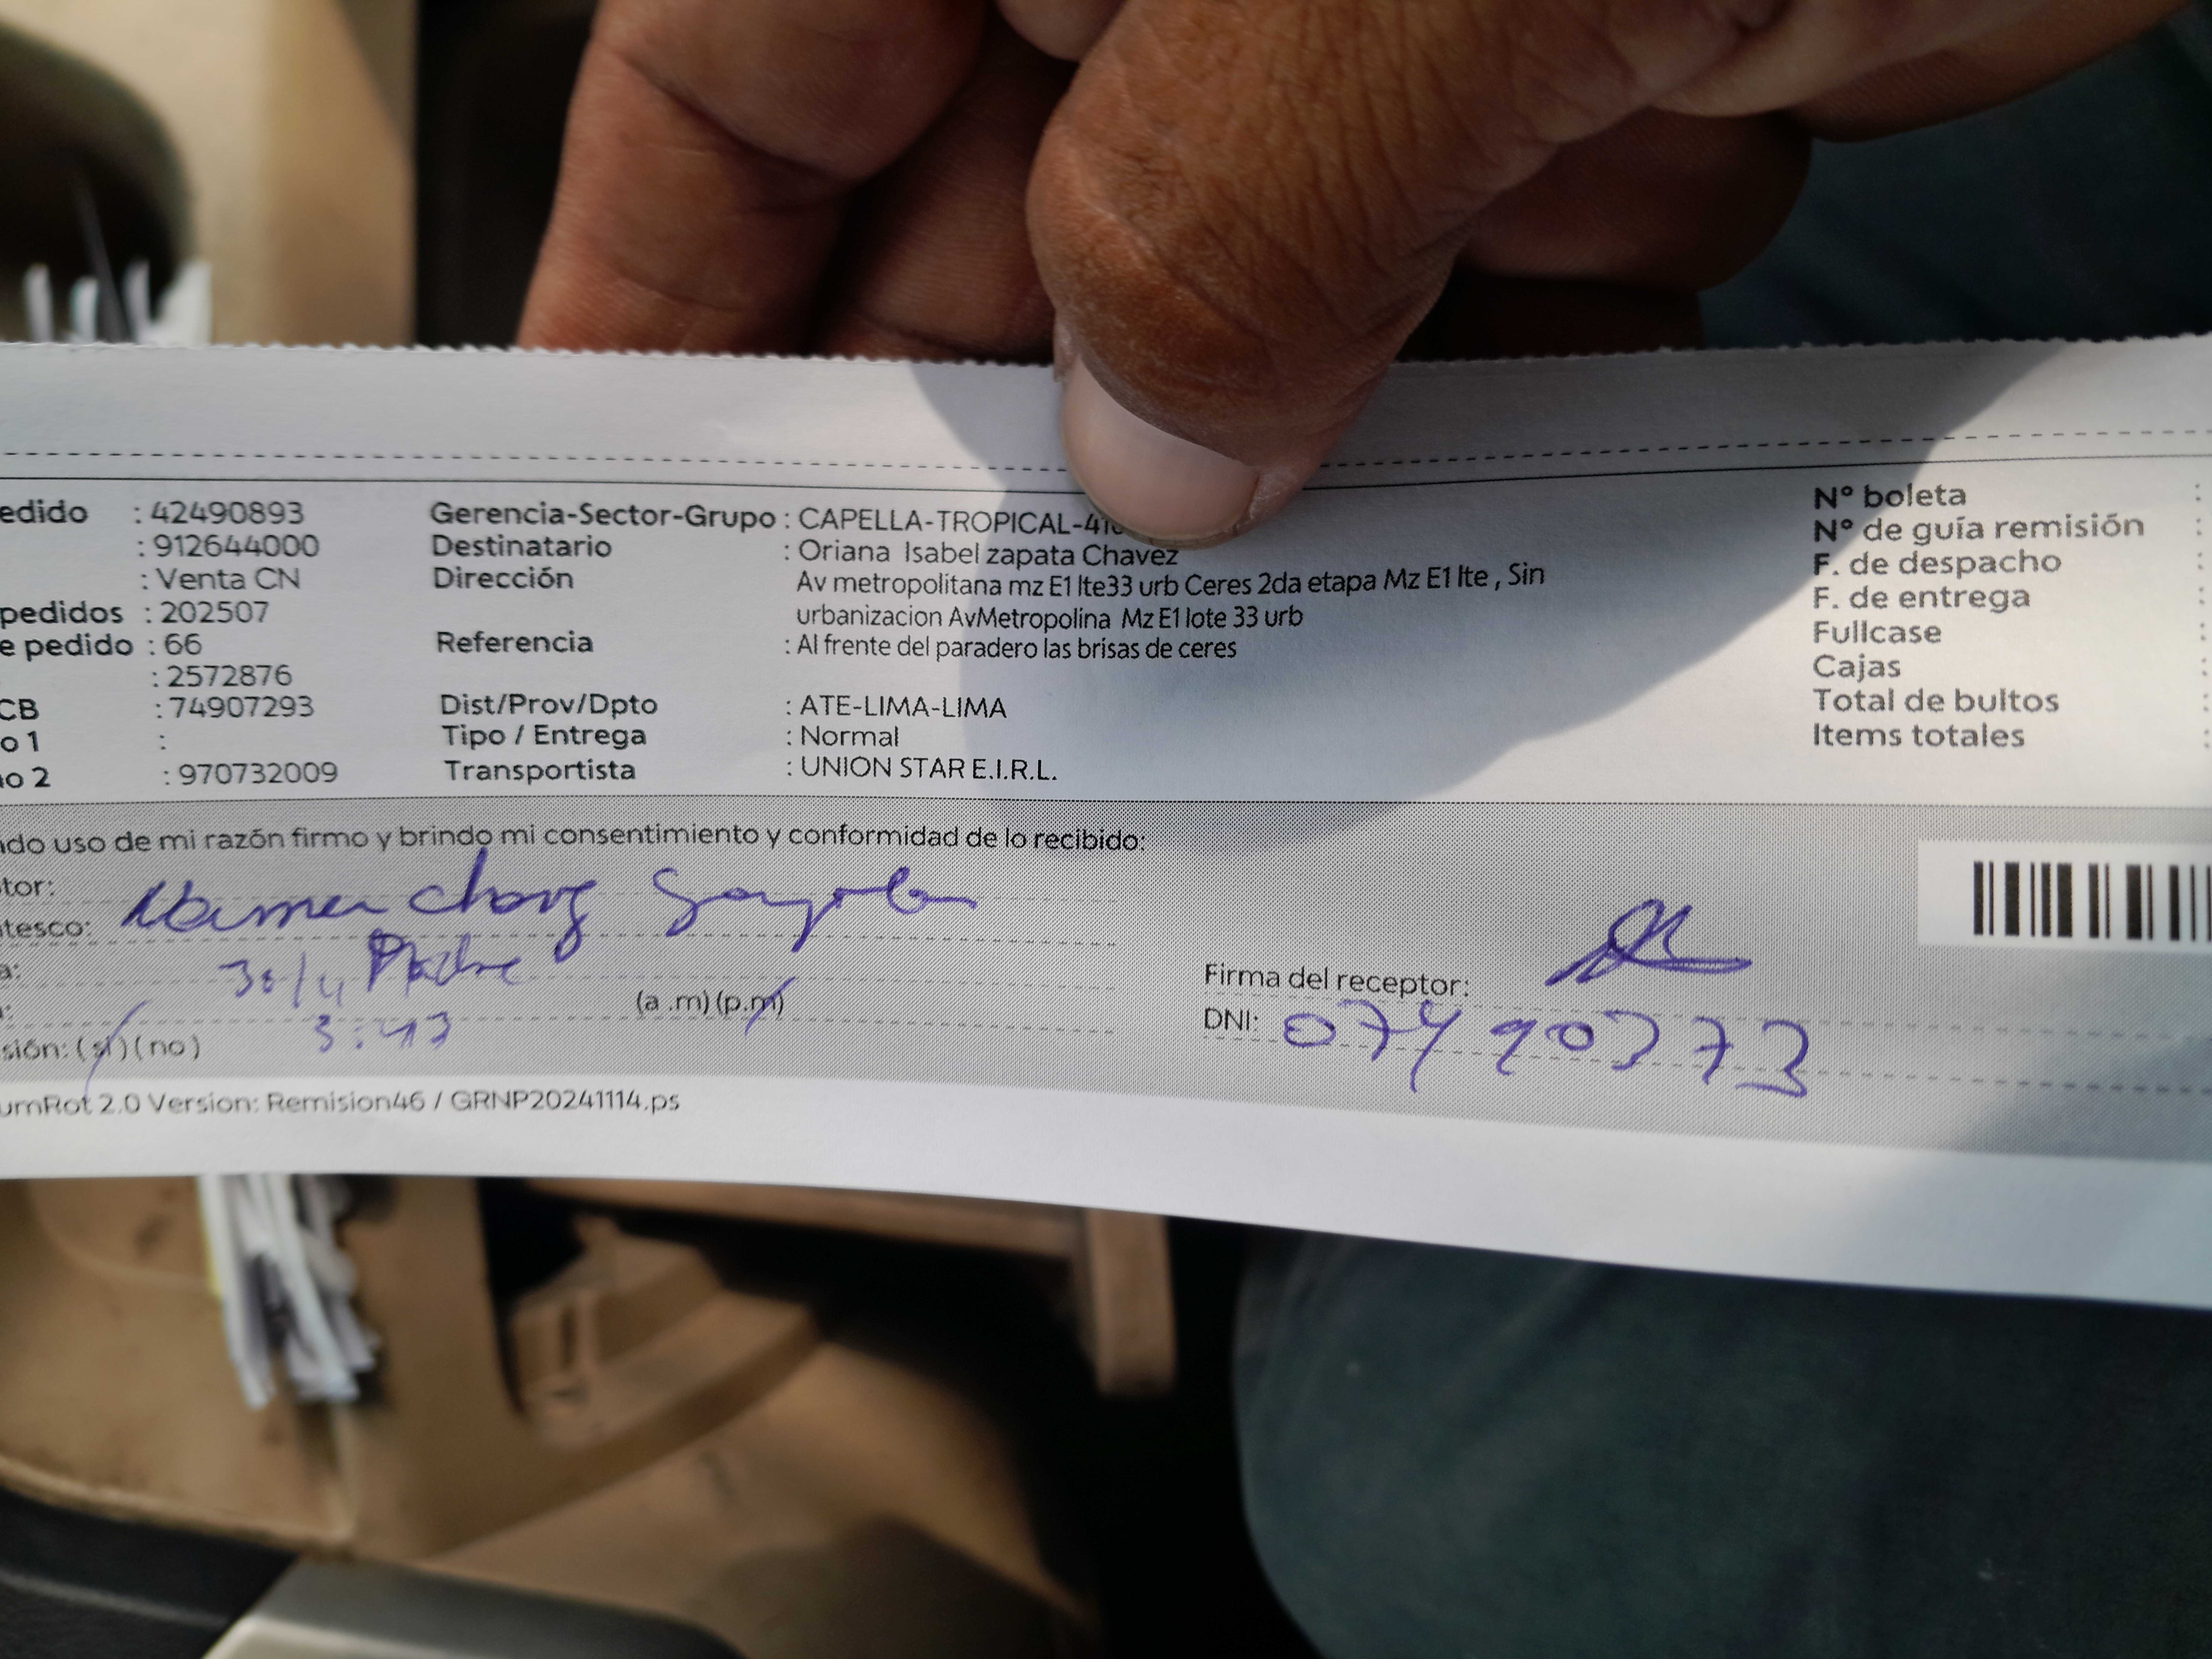 edido : 42490893 Gerencia-Sector-Grupo : CAPELLA-TROPICAL-41 Nº boleta :
: 912644000 Destinatario : Oriana Isabel zapata Chavez Nº de guía remisión :
: Venta CN Dirección Av metropolitana mz E1 lte33 urb Ceres 2da etapa Mz E1 lte , Sin F. de despacho :
pedidos : 202507 urbanizacion AvMetropolina Mz E1 lote 33 urb F. de entrega :
e pedido : 66 Referencia : Al frente del paradero las brisas de ceres Fullcase :
: 2572876 Cajas :
CB : 74907293 Dist/Prov/Dpto : ATE-LIMA-LIMA Total de bultos :
o 1 : Tipo / Entrega : Normal Items totales :
no 2 : 970732009 Transportista : UNION STAR E.I.R.L.
ndo uso de mi razón firmo y brindo mi consentimiento y conformidad de lo recibido:
tor:
tesco:
a: 30/4 Madre
(a .m) (p.m) Firma del receptor:
sión: (si) (no) 3:43 DNI:
umRot 2.0 Version: Remision46 / GRNP20241114.ps